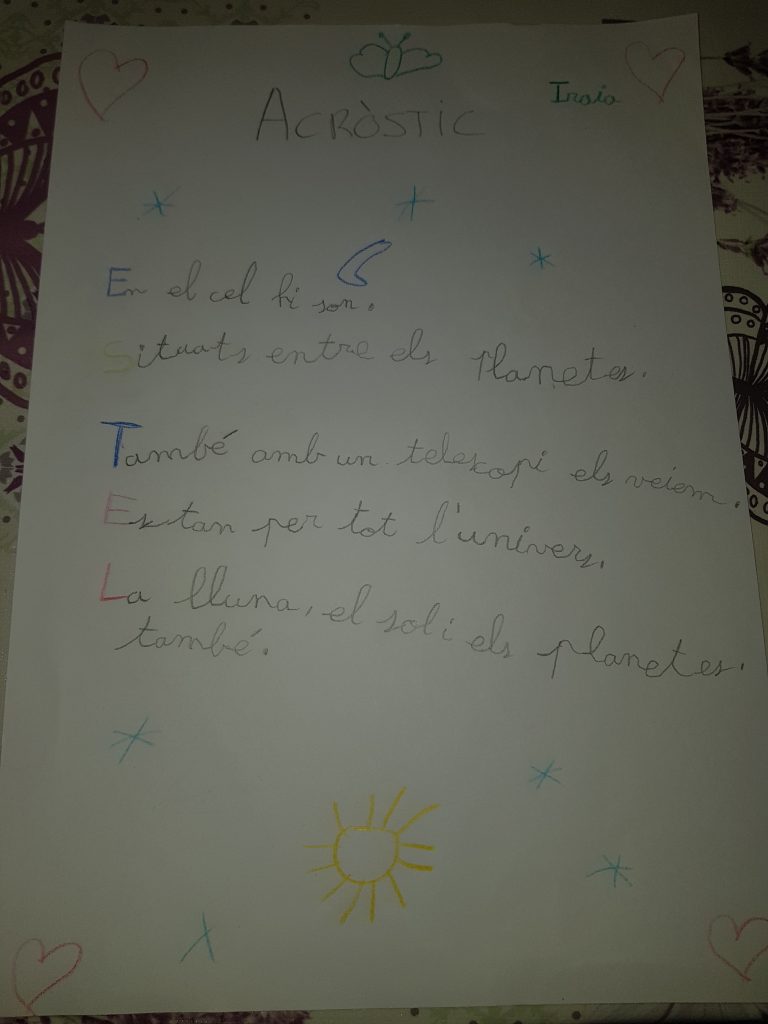 Iraia
ACRÒSTIC
En el cel hi son.
Situats entre els planetes.
També amb un telescopi els veiem.
Estan per tot l'univers.
La lluna, el sol i els planetes.
també.